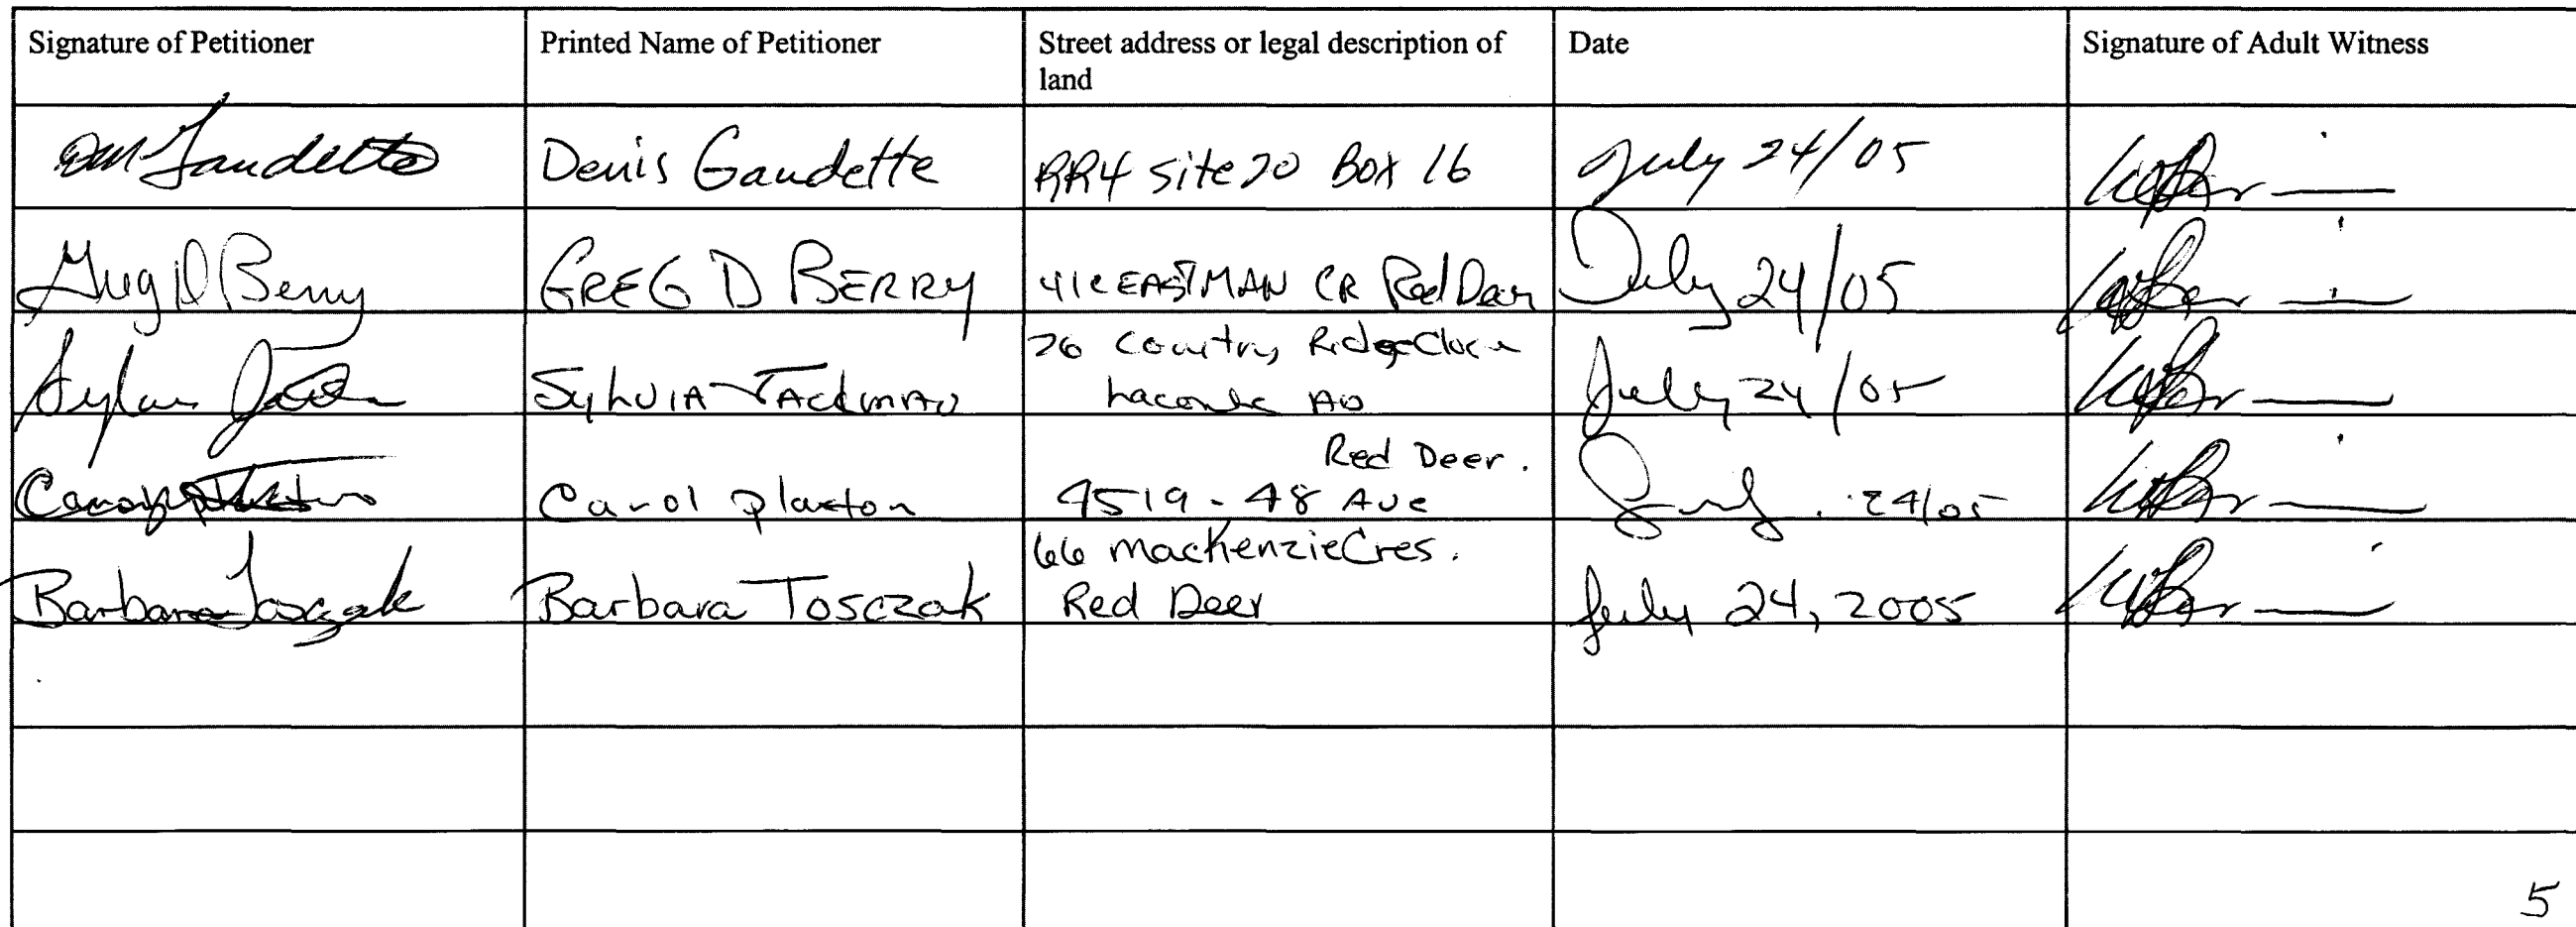 Signature of Petitioner
Printed Name of Petitioner
Street address or legal description of
land
Date
Signature of Adult Witness
Gaudette
Denis Gaudette
RR4 Site 20 Box 16
July 24/05
Greg D Berry
GREG D BERRY
EASTMAN CR Red Deer
July 24/05
SylVIA
26 Country Ridge Close
Lacombe AB
July 24/05
Carol Plaxton
Carol Plaxton
Red Deer.
4519 - 48 Ave
July. 24/05
Barbara Tosczak
Barbara Tosczak
66 MacKenzie Cres.
Red Deer
July 24, 2005
5